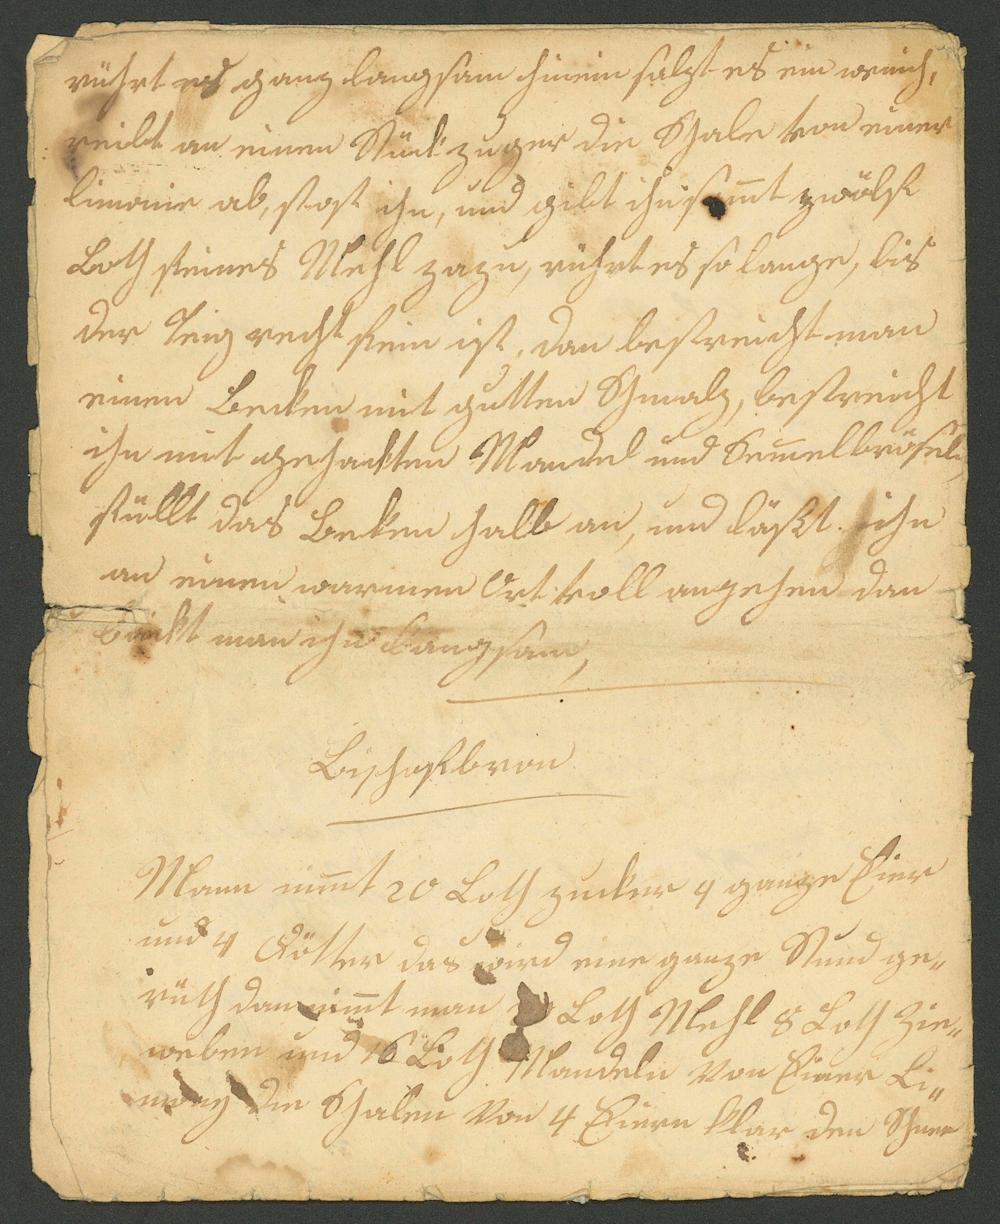 rührt es ganz langsam hinein salzt es ein wenich,
reibt an einem Stück zuger die Schale von einer
limonie ab, stost ihn, und gibt ihn samt zwölf
Loth feines Mehl zazu, rührt es so lange, bis
der Teig recht fein ist, dan bestreicht man
einen Becken mit gutten Schmalz, bestreicht
ihn mit gehackten Mandel und Semmelbrösel,
füllt das Becken halb an, und läßt ihn
an einen warmen Ort voll angehen dan
bäckt man ihn langsam,
Bischofbron
Mann nimt 20 Loth zucker 4 ganze Eier
und 4 Dötter das wird eine ganze Stund ge„
rüth dan nimt man Loth Mehl 8 Loth Zie„
weben und 16 Loth Mandeln Von Einer Li„
mony die Schalen Von 4 Eiern klar den Schnee